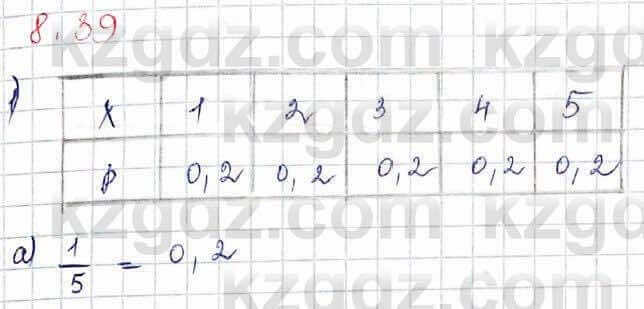 8.39
1)
X 1 2 3 4 5
P 0,2 0,2 0,2 0,2 0,2
a) 1/5 = 0,2
kzgdz.com
kzgdz.com
kzgdz.com
kzgdz.com
kzgdz.com